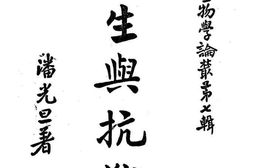 物學論叢第七輯
生與抗
潘光旦著